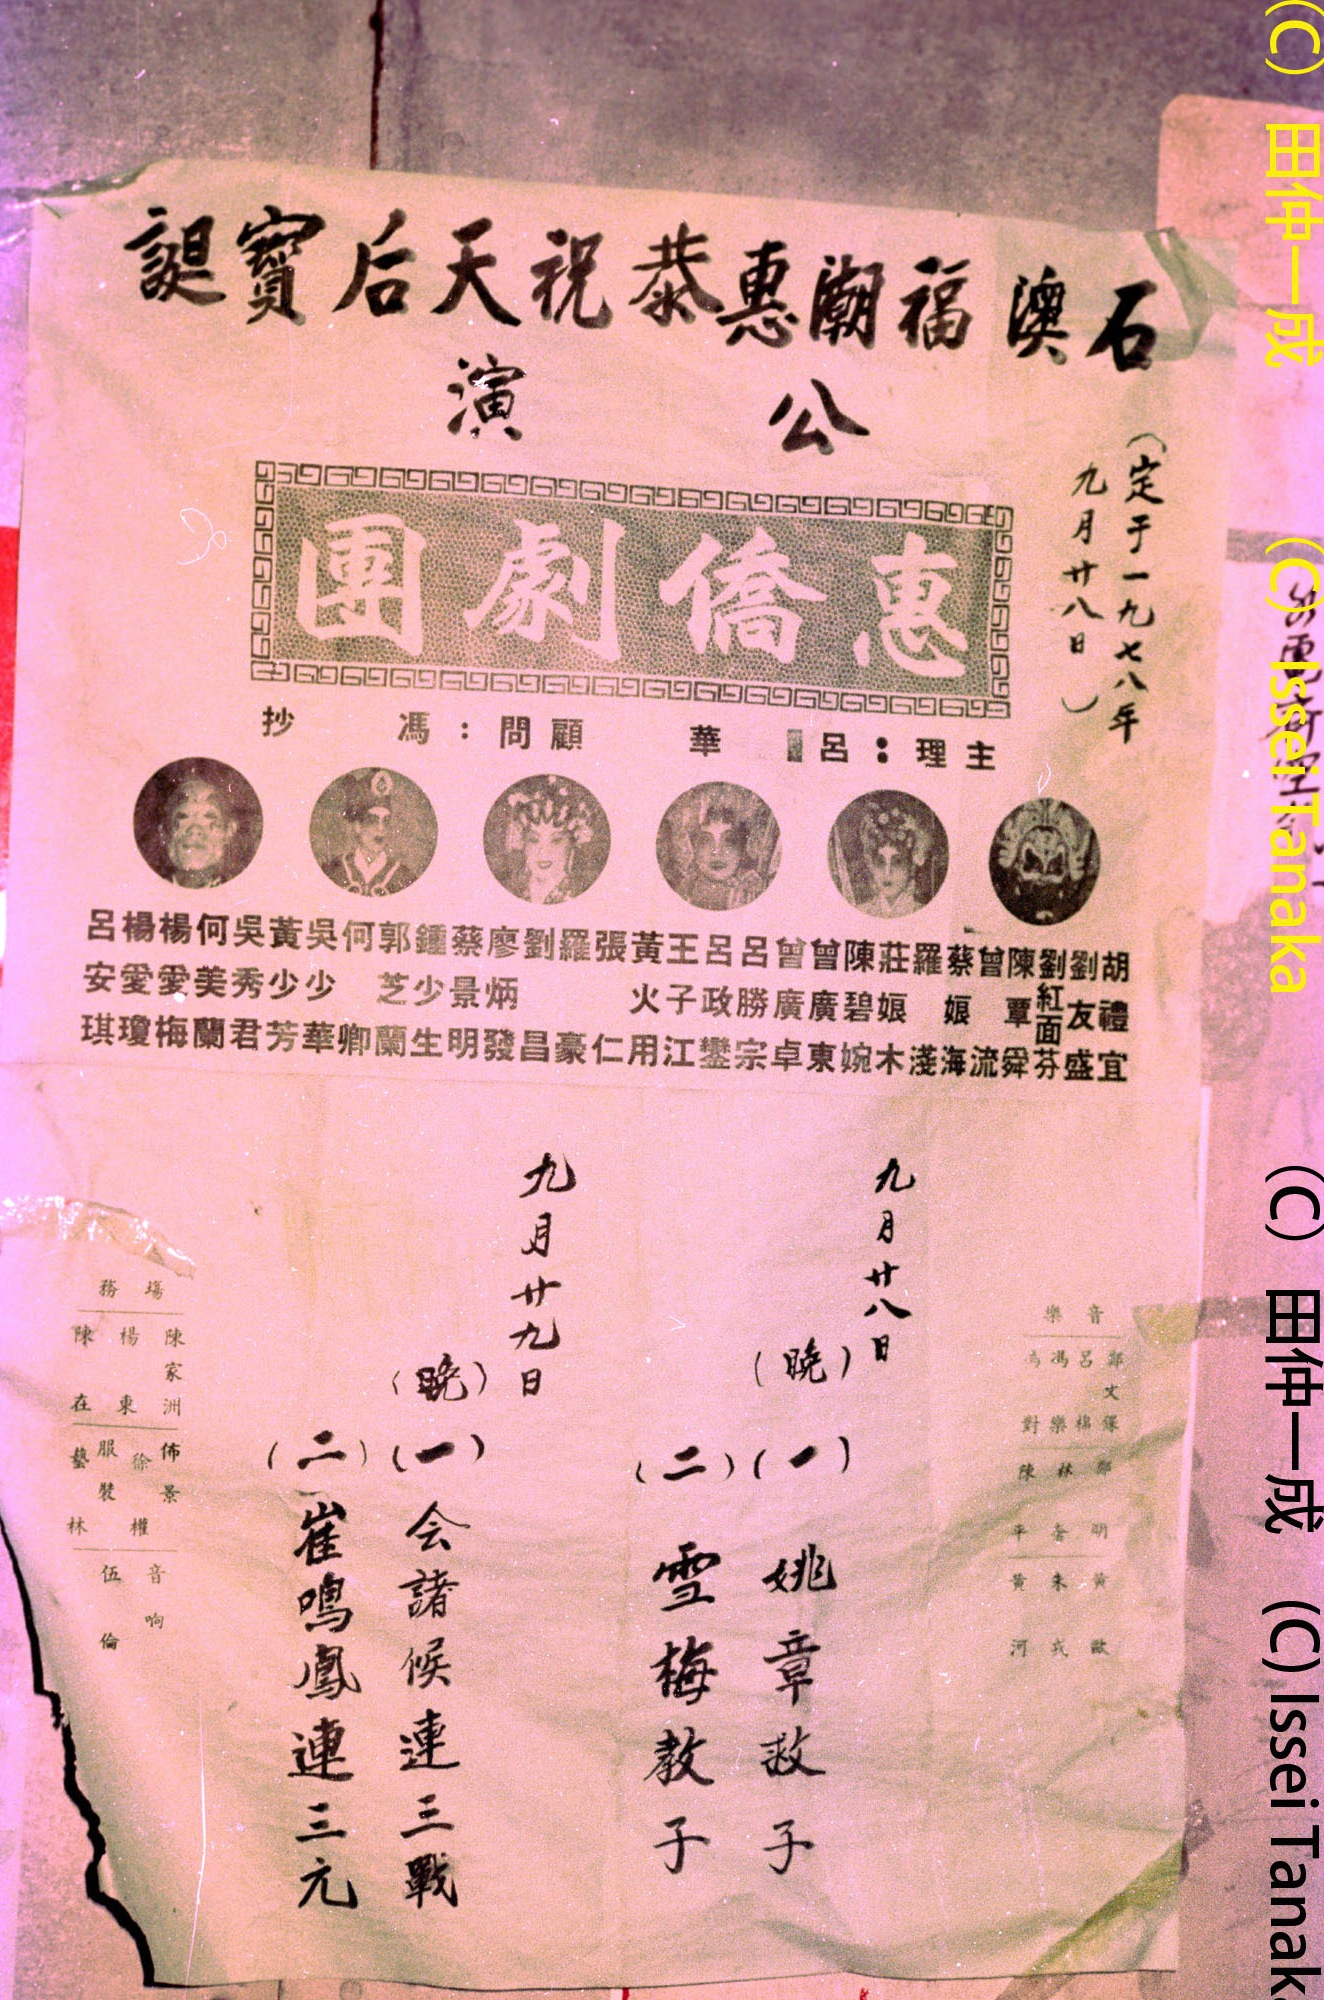 石澳福潮惠恭祝天后寶誕
公演
(定于一九七八年
九月廿八日)
惠僑劇團
主理:呂 華
顧問:馮 抄
胡禮宜
劉友盛
劉紅面芬
陳覃舜
曾流
蔡娘海
羅淺
莊娘木
陳碧婉
曾廣東
曾廣卓
呂勝宗
呂政鑾
王子江
黃火用
張仁
羅豪
劉昌
廖炳發
蔡景明
鍾少生
郭芝蘭
何卿
吳少華
黃少芳
吳秀君
何美蘭
楊愛梅
楊愛瓊
呂安琪
音樂
鄭文
呂棉
馮樂
對
林
陳平
明
黃
朱
黃河
歐
九月廿八日
(晚)
(一)姚章救子
(二)雪梅教子
九月廿九日
(晚)
(一)会諸候連三戰
(二)崔鳴鳳連三元
場務
陳家洲
楊東
陳在
佈景
徐權
服裝
藝林
音响
伍倫
(C) 田仲一成 (C) Issei Tanaka
(C) 田仲一成 (C) Issei Tanaka